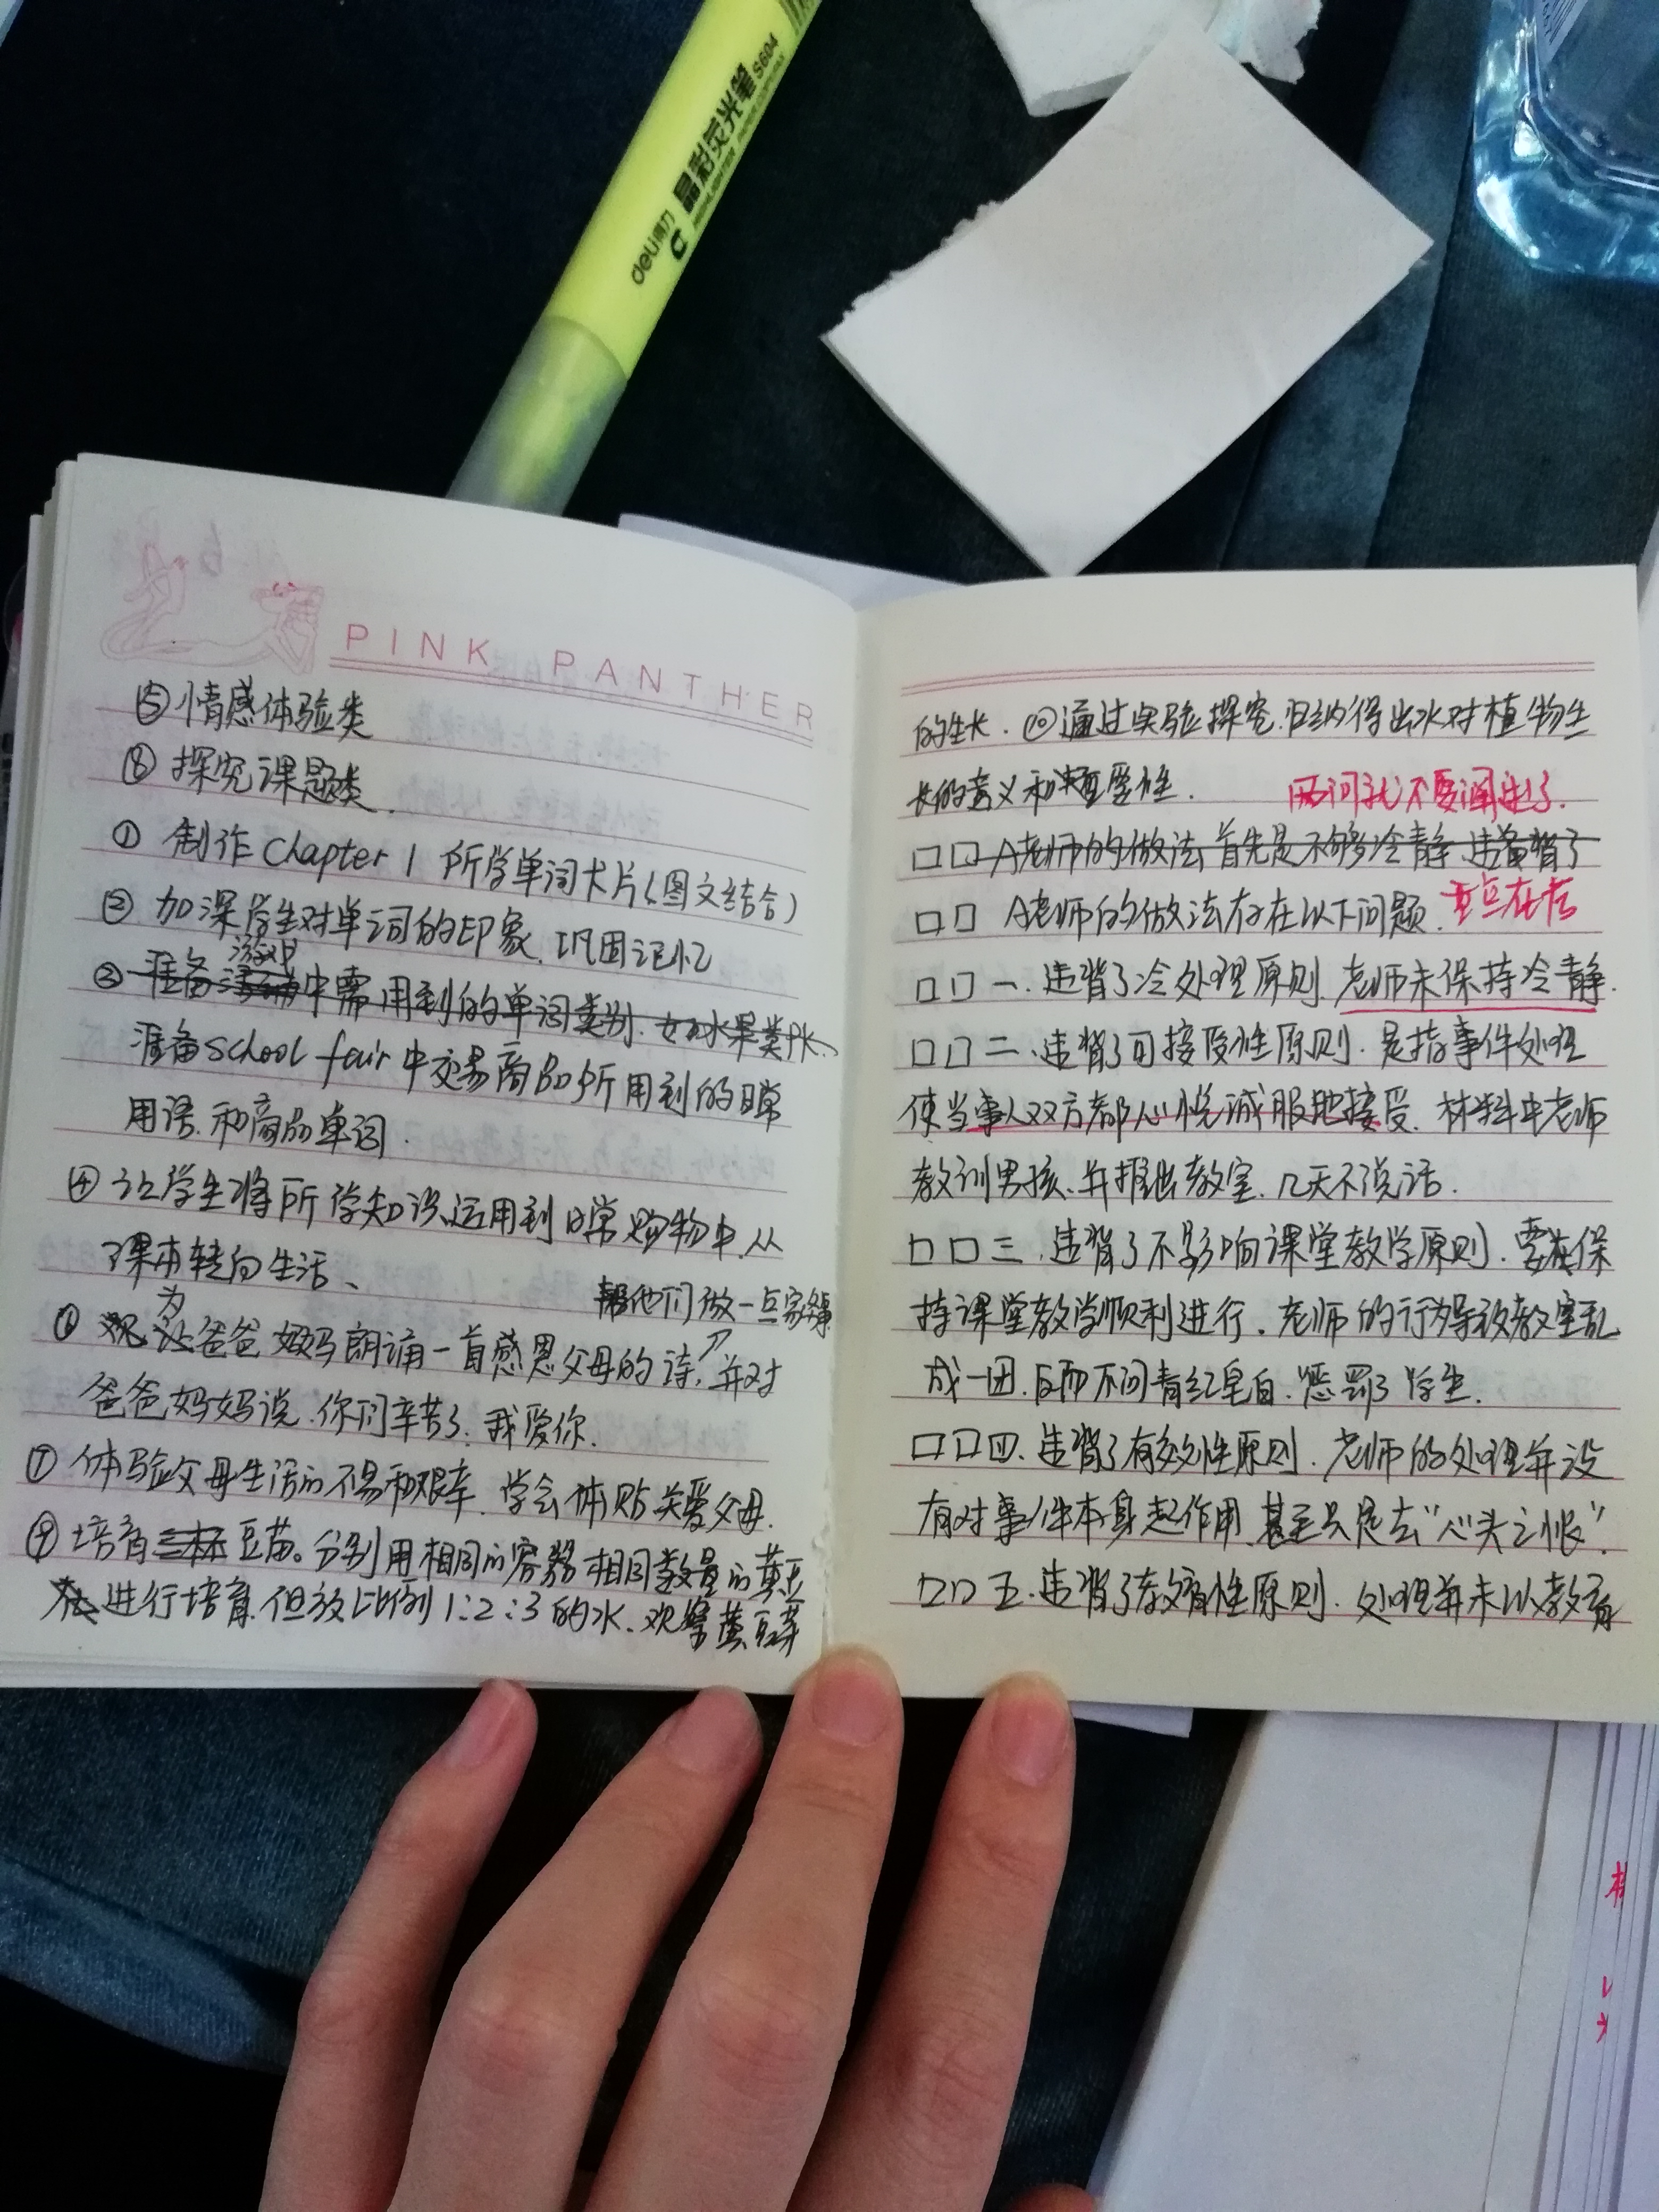 deli得力 晶彩荧光笔 S604
PINK PANTHER
⑤ 情感体验类
⑧ 探究课题类.
① 制作 Chapter 1 所学单词卡片(图文结合)
② 加深学生对单词的印象. 巩固记忆
游戏
③ 准备中需用到的单词类别. 如水果类PK、
准备 School fair 中交易商品所用到的日常
用语.和商品单词.
④ 让学生将所学知识运用到日常购物中.从
课本转向生活、
为 帮他们做一点家务
爸爸妈妈朗诵一首感恩父母的诗,并对
爸爸妈妈说.你们辛苦了.我爱你.
⑦ 体验父母生活的不易和艰辛.学会体贴关爱父母.
⑨ 培育三杯豆苗。分别用相同的容器相同数量的黄豆
进行培育.但放比例1:2:3的水.观察黄豆芽
的生长. ⑩通过实验探究.归纳得出水对植物生
长的意义和重要性. 两问就不要阐述了.
口口A老师的做法首先是不够冷静.违背了
口口 A老师的做法存在以下问题. 重点在后
口口一.违背了冷处理原则.老师未保持冷静.
口口二、违背了可接受性原则.是指事件处理
使当事人双方都心悦诚服地接受.材料中老师
教训男孩、并推出教室.几天不说话.
口口三.违背了不影响课堂教学原则.要在保
持课堂教学顺利进行.老师的行为导致教室乱
成一团.反而不问青红皂白.惩罚了学生.
口口四.违背了有效性原则.老师的处理并没
有对事件本身起作用.甚至只是去“心头之恨”.
口口五.违背了教育性原则.处理并未以教育